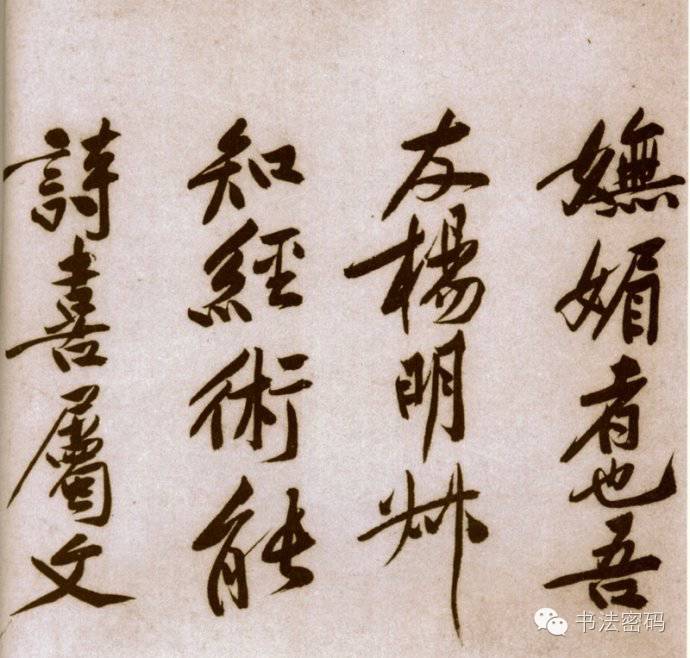 嫵媚者也吾
友楊明叔
知經術能
詩喜屬文
书法密码